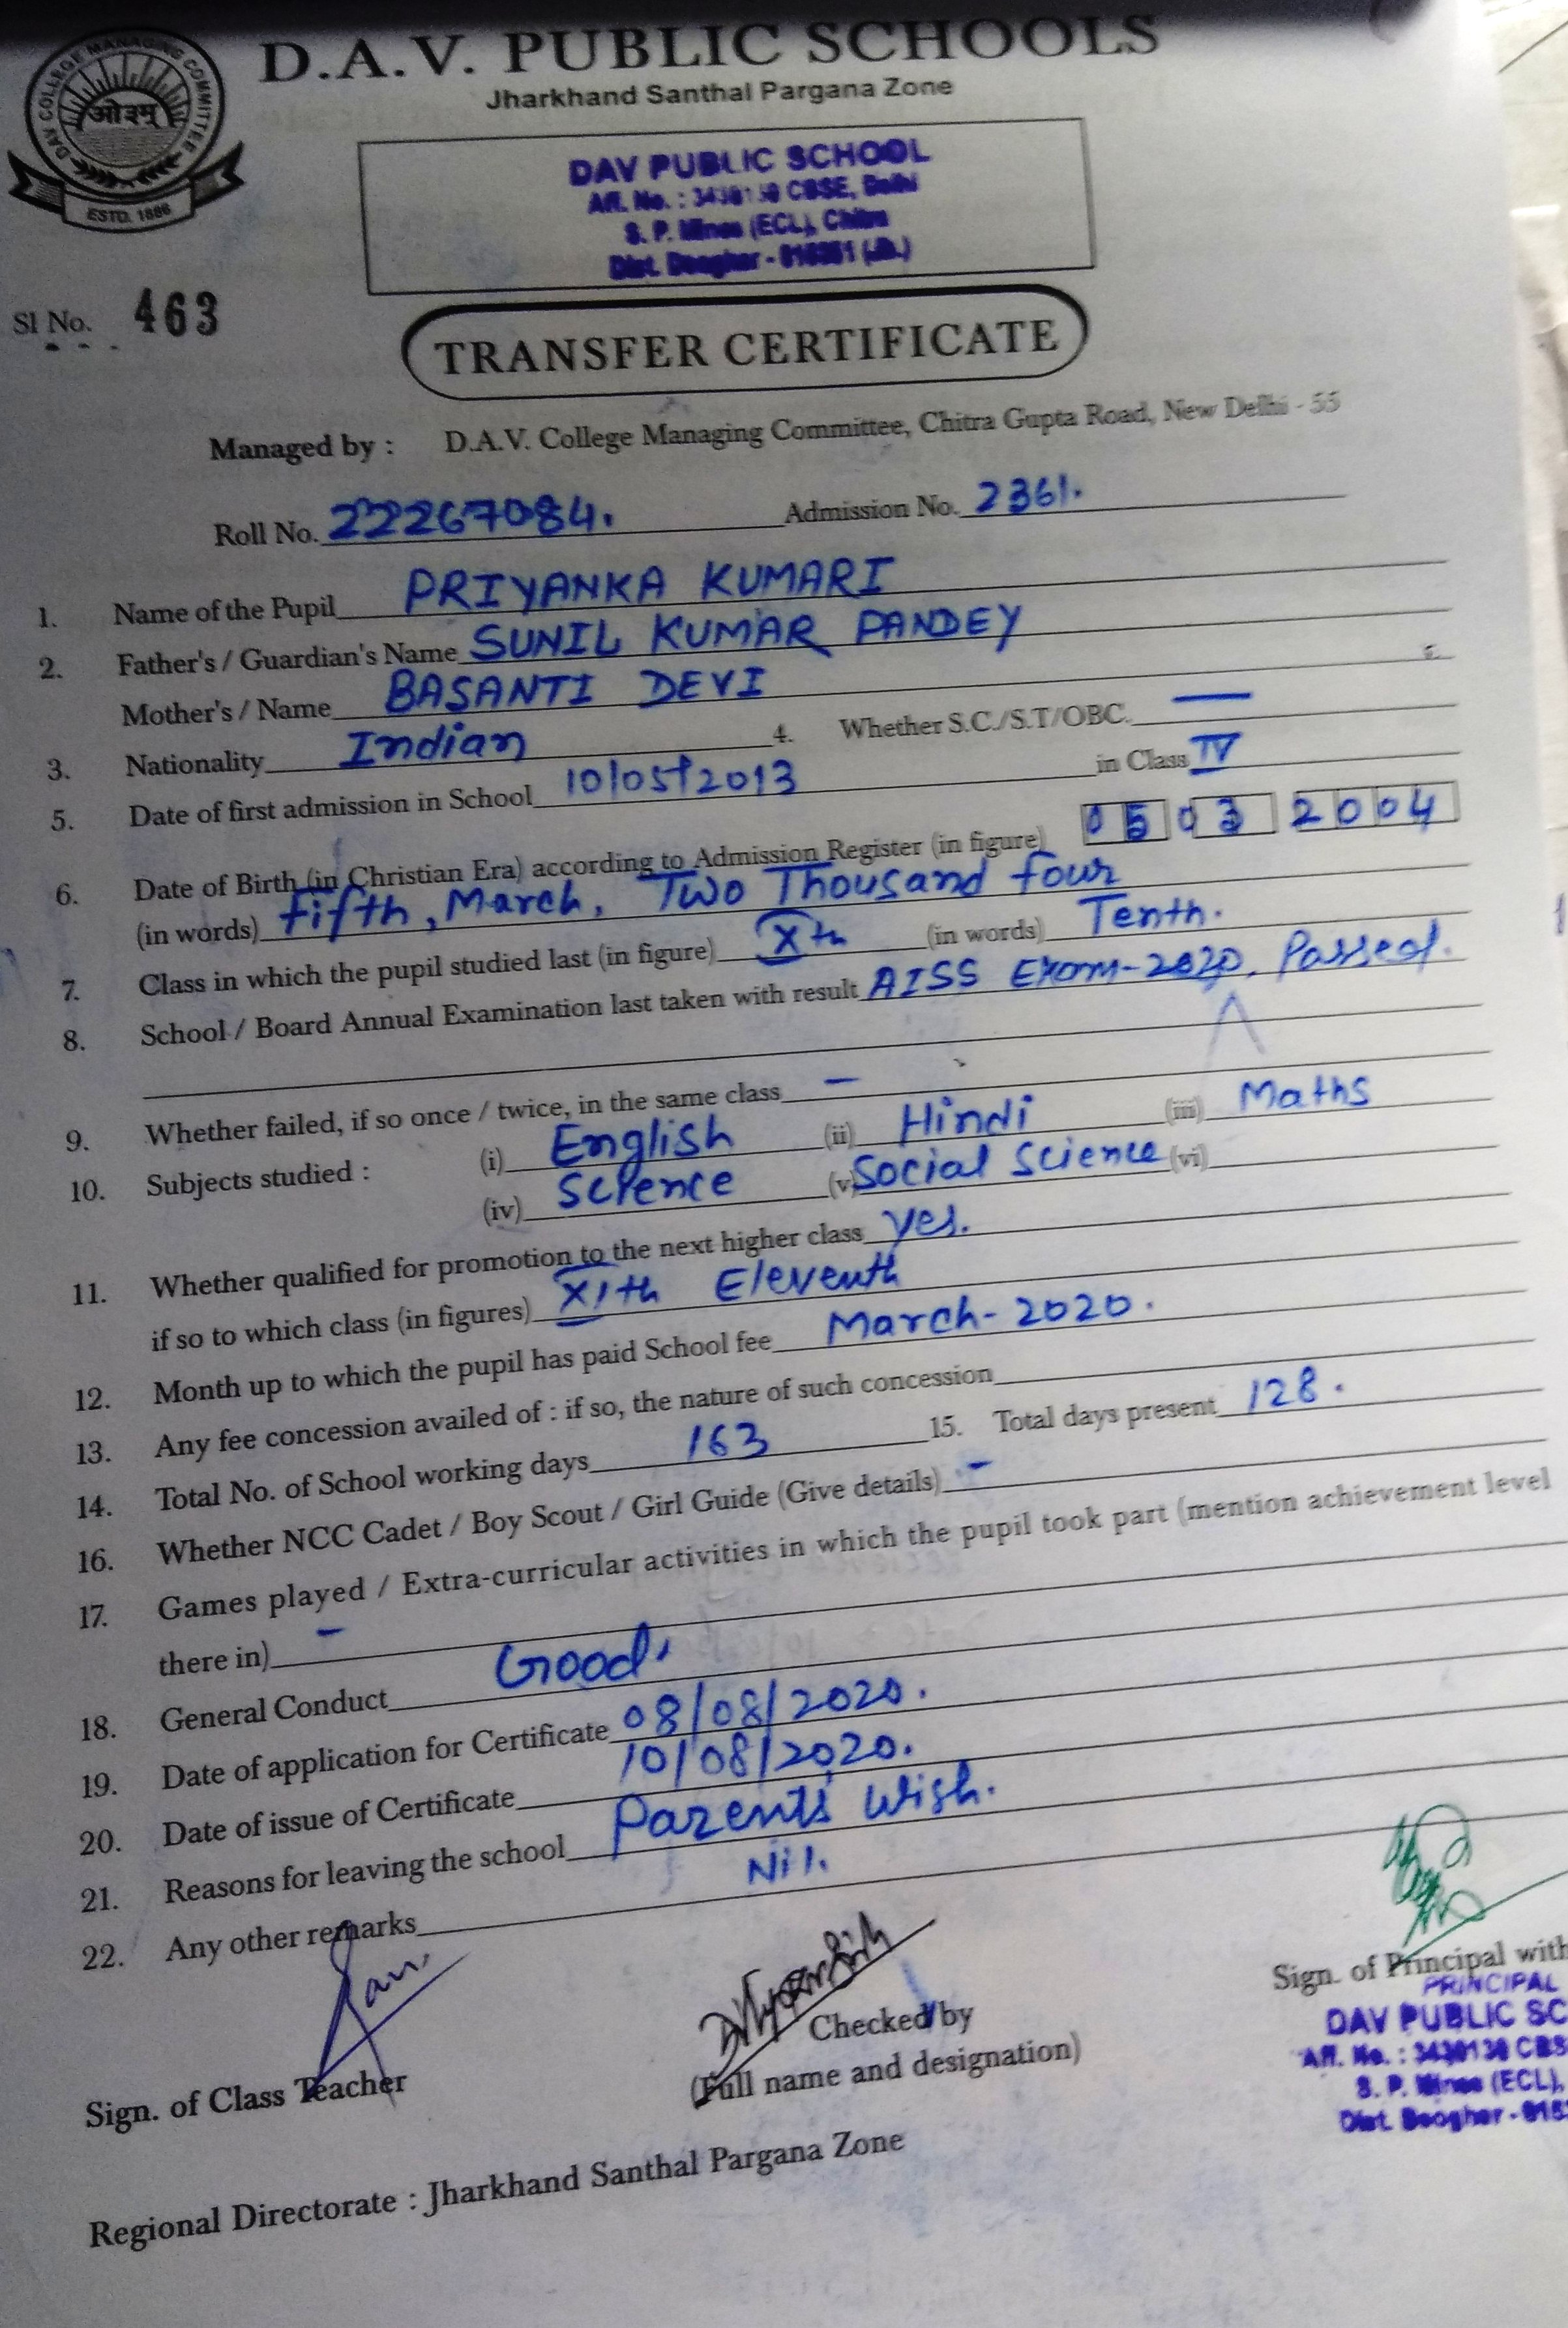 D.A.V. PUBLIC SCHOOLS
Jharkhand Santhal Pargana Zone
DAV COLLEGE MANAGING COMMITTEE
ओ३म्
ESTD. 1886
DAV PUBLIC SCHOOL
Aff. No. : 3430130 CBSE, Delhi
S. P. Mines (ECL), Chitra
Dist. Deoghar -
Sl No. 463
TRANSFER CERTIFICATE
Managed by : D.A.V. College Managing Committee, Chitra Gupta Road, New Delhi - 55
Roll No. 22267084. Admission No. 2361.
1. Name of the Pupil PRIYANKA KUMARI
2. Father's / Guardian's Name SUNIL KUMAR PANDEY
Mother's / Name BASANTI DEVI
3. Nationality Indian 4. Whether S.C./S.T/OBC. —
5. Date of first admission in School 10/05/2013 in Class IV
6. Date of Birth (in Christian Era) according to Admission Register (in figure) 05 03 2004
(in words) fifth, March, Two Thousand four
7. Class in which the pupil studied last (in figure) Xth (in words) Tenth.
8. School / Board Annual Examination last taken with result AISS Exam-2020, Passed.
9. Whether failed, if so once / twice, in the same class —
10. Subjects studied : (i) English (ii) Hindi (iii) Maths
(iv) Science (v) Social Science (vi)
11. Whether qualified for promotion to the next higher class yes.
if so to which class (in figures) XIth Eleventh
12. Month up to which the pupil has paid School fee March-2020.
13. Any fee concession availed of : if so, the nature of such concession
14. Total No. of School working days 163 15. Total days present 128.
16. Whether NCC Cadet / Boy Scout / Girl Guide (Give details) -
17. Games played / Extra-curricular activities in which the pupil took part (mention achievement level
there in) -
18. General Conduct Good.
19. Date of application for Certificate 08/08/2020.
20. Date of issue of Certificate 10/08/2020.
21. Reasons for leaving the school Parents' Wish.
22. Any other remarks Nil.
Sign. of Class Teacher
Checked by
(Full name and designation)
Sign. of Principal with
PRINCIPAL
DAV PUBLIC SC
Aff. No. : 3430130 CBS
S. P. Mines (ECL),
Dist. Deoghar - 815
Regional Directorate : Jharkhand Santhal Pargana Zone